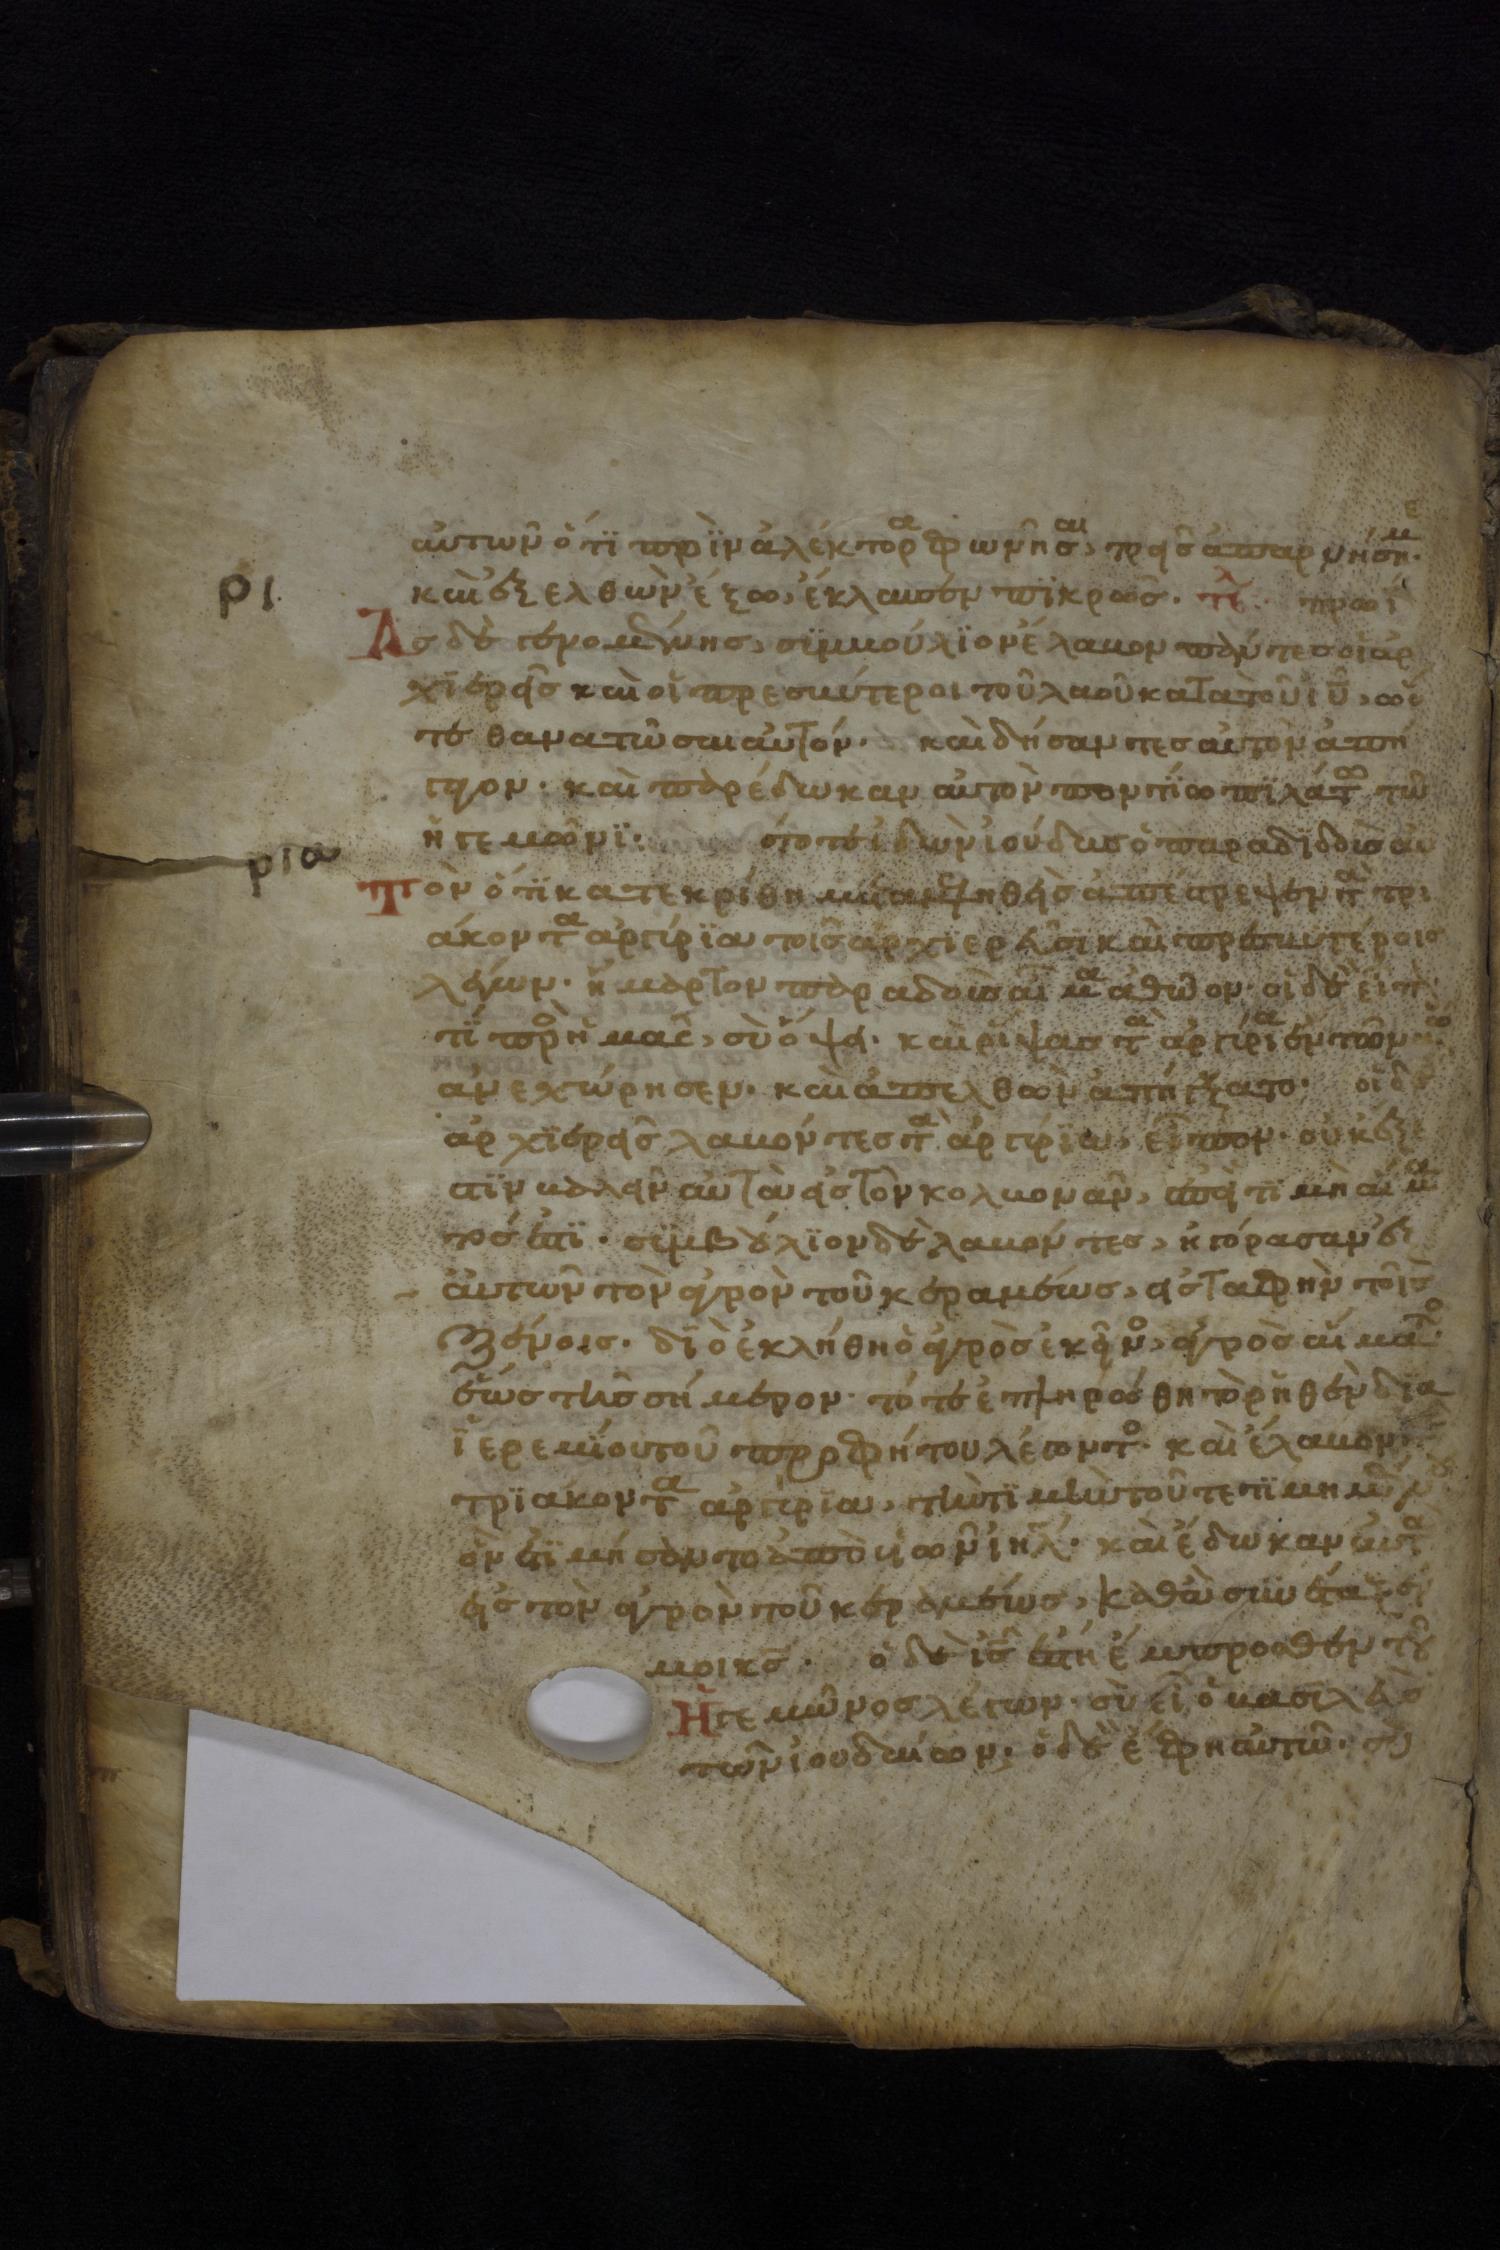 αὐτῶν ὅτι πρὶν ἀλέκτορα φωνῆσαι, τρεῖς ἀπαρνήσῃ με.
ρι
καὶ ἐξελθὼν ἔξω, ἔκλαυσεν πικρῶς. τλ πρωΐ
ασ δὲ γενομένης, συμβούλϊον ἔλαβον πάντες οἱ ἀρ
χϊερεῖς καὶ οἱ πρεσβύτεροι τοῦ λαοῦ κατὰ τοῦ ιυ, ὥς
τε θανατῶσαι αὐτόν. καὶ δήσαντες αὐτὸν ἀπή
γαγον. καὶ παρέδωκαν αὐτὸν ποντίω πϊλάτω τῶ
ἡγεμῶνϊ. τότε ἰδὼν ἰούδας ὁ παραδιδοὺς αὐ
ρια
Τὸν ὅτϊ κατεκρίθη μεταμεληθεὶς ἀπέστρεψεν τὰ τρι
άκοντα ἀργύρϊα τοῖς ἀρχϊερεῦσι καὶ πρεσβυτέροις
λέγων. ἥμαρτον παραδοὺς αἷμα ἀθῶον. οἱ δὲ εἶπον.
τί πρὸς ἡμᾶς, σὺ ὄψει. καὶ ῥίψας τὰ ἀργύρια ἐν τῶ ναῶ
ἀνεχώρησεν. καὶ ἀπελθὼν ἀπήγξατο. οἱ δὲ
ἀρχϊερεῖς λαβόντες τὰ ἀργύρϊα, εἶπον. οὐκ ἔξε
στϊν βαλεῖν αὐτὰ εἰς τὸν κολβονᾶν, ἐπεὶ τϊμὴ αἵμα
τός ἐστϊ. σϊμβούλϊον δὲ λαβόντες, ἠγόρασαν ἐξ
αὐτῶν τὸν ἀγρὸν τοῦ κεραμέως, εἰς ταφὴν τοῖς
ξένοις. δϊὸ ἐκλήθη ὁ ἀγρὸς ἐκεῖνος, ἀγρὸς αἵματος
ἕως τῆς σήμερον. τότε ἐπληρώθη τὸ ῥηθὲν διὰ
ἱερεμίου τοῦ προφήτου λέγοντος. καὶ ἔλαβον
τριάκοντα ἀργύρϊα, τὴν τϊμὴν τοῦ τετϊμημένου
ὃν ἐτϊμήσαντο ἀπὸ υἱῶν ιηλ. καὶ ἔδωκαν αὐτὰ
εἰς τὸν ἀγρὸν τοῦ κεραμέως, καθὰ συνέταξέ
μοι κς. ὁ δὲ ις ἔστη ἔμπροσθεν τοῦ
Ἡγεμῶνος λέγων. σὺ εἶ ὁ βασιλεὺς
τῶν ἰουδαίων. ὁ δὲ ἔφη αὐτῶ. σὺ